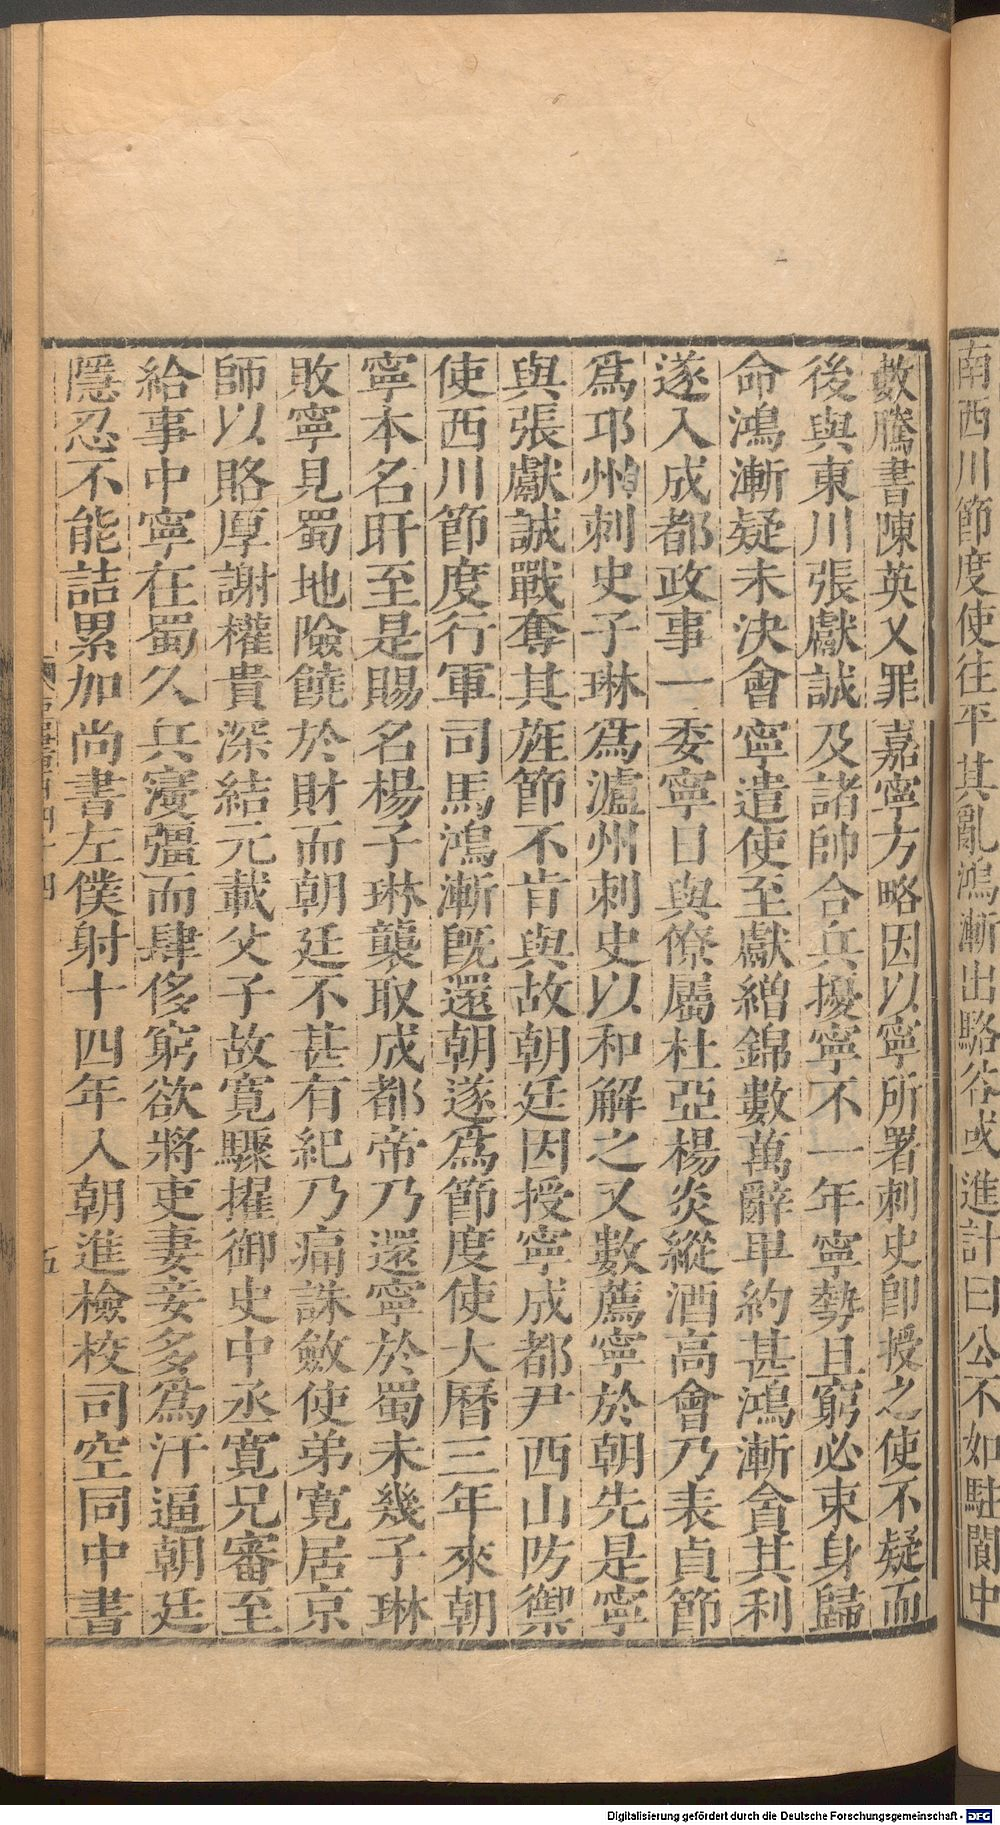 南西川節度使往平其亂鴻漸出駱谷或進計曰公不如駐閬中
數騰書陳英乂罪嘉寧方略因以寧所署刺史卽授之使不疑而
後與東川張獻誠及諸帥合兵擾寧不一年寧勢且窮必束身歸
命鴻漸疑未決會寧遣使至獻繒錦數萬辭卑約甚鴻漸貪其利
遂入成都政事一委寧日與僚屬杜亞楊炎縱酒高會乃表貞節
爲邛州刺史子琳爲瀘州刺史以和解之又數薦寧於朝先是寧
與張獻誠戰奪其旌節不肯與故朝廷因授寧成都尹西山防禦
使西川節度行軍司馬鴻漸旣還朝遂爲節度使大曆三年來朝
寧本名旰至是賜名楊子琳襲取成都帝乃還寧於蜀未幾子琳
敗寧見蜀地險饒於財而朝廷不甚有紀乃痛誅斂使弟寬居京
師以賂厚謝權貴深結元載父子故寬驟擢御史中丞寬兄審至
給事中寧在蜀久兵寖彊而肆侈窮欲將吏妻妾多爲汙逼朝廷
隱忍不能詰累加尚書左僕射十四年入朝進檢校司空同中書
五
Digitalisierung gefördert durch die Deutsche Forschungsgemeinschaft - DFG